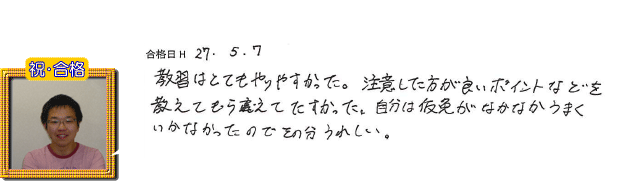 祝・合格
合格日 H 27. 5. 7
教習はとてもやりやすかった。注意した方が良いポイントなどを
教えてもらえてたすかった。自分は仮免がなかなかうまく
いかなかったのでその分うれしい。